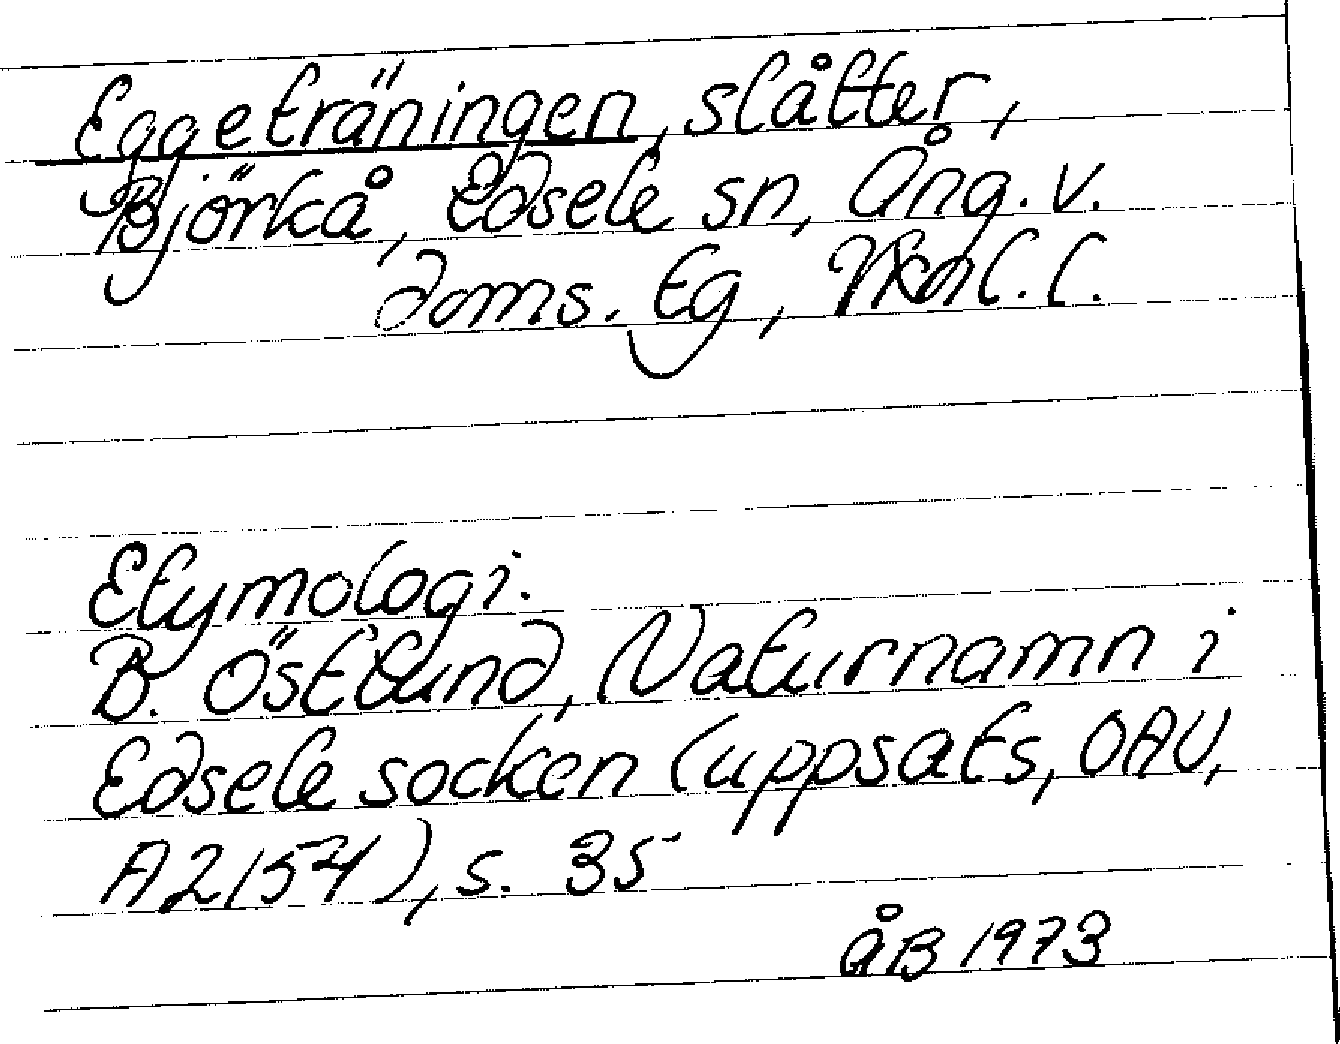 Eggeträningen, slåtter,
Björkå, Edsele sn, Ång. v.
doms. Eg, l.
Etymologi.
B. Östlund, Naturnamn i
Edsele socken (uppsats, OAU,
A2154), s. 35
ÅB 1973